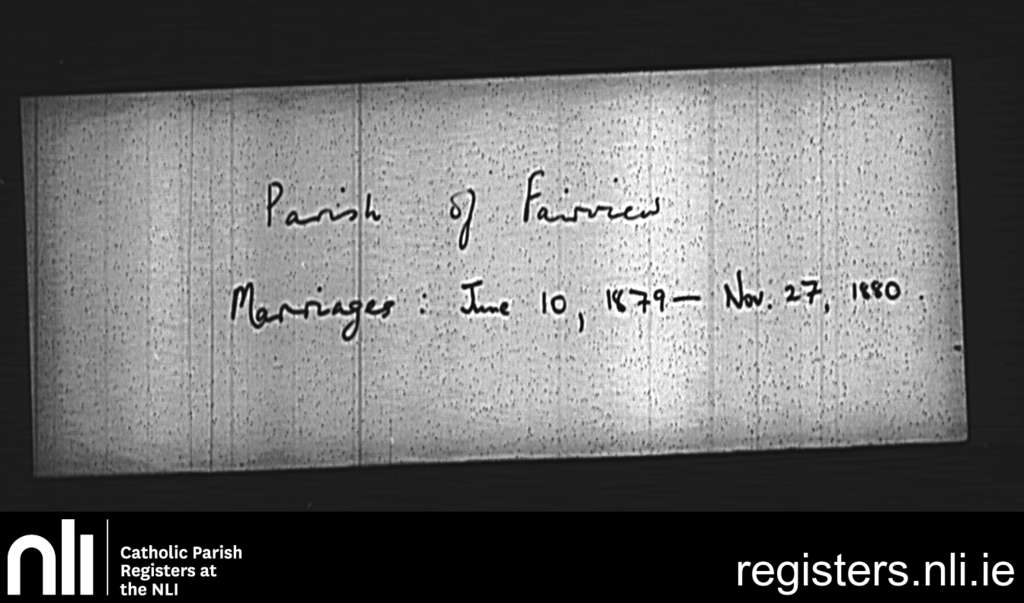 Parish of Fairview
Marriages : June 10, 1879 — Nov. 27, 1880.
nli
Catholic Parish
Registers at
the NLI
registers.nli.ie